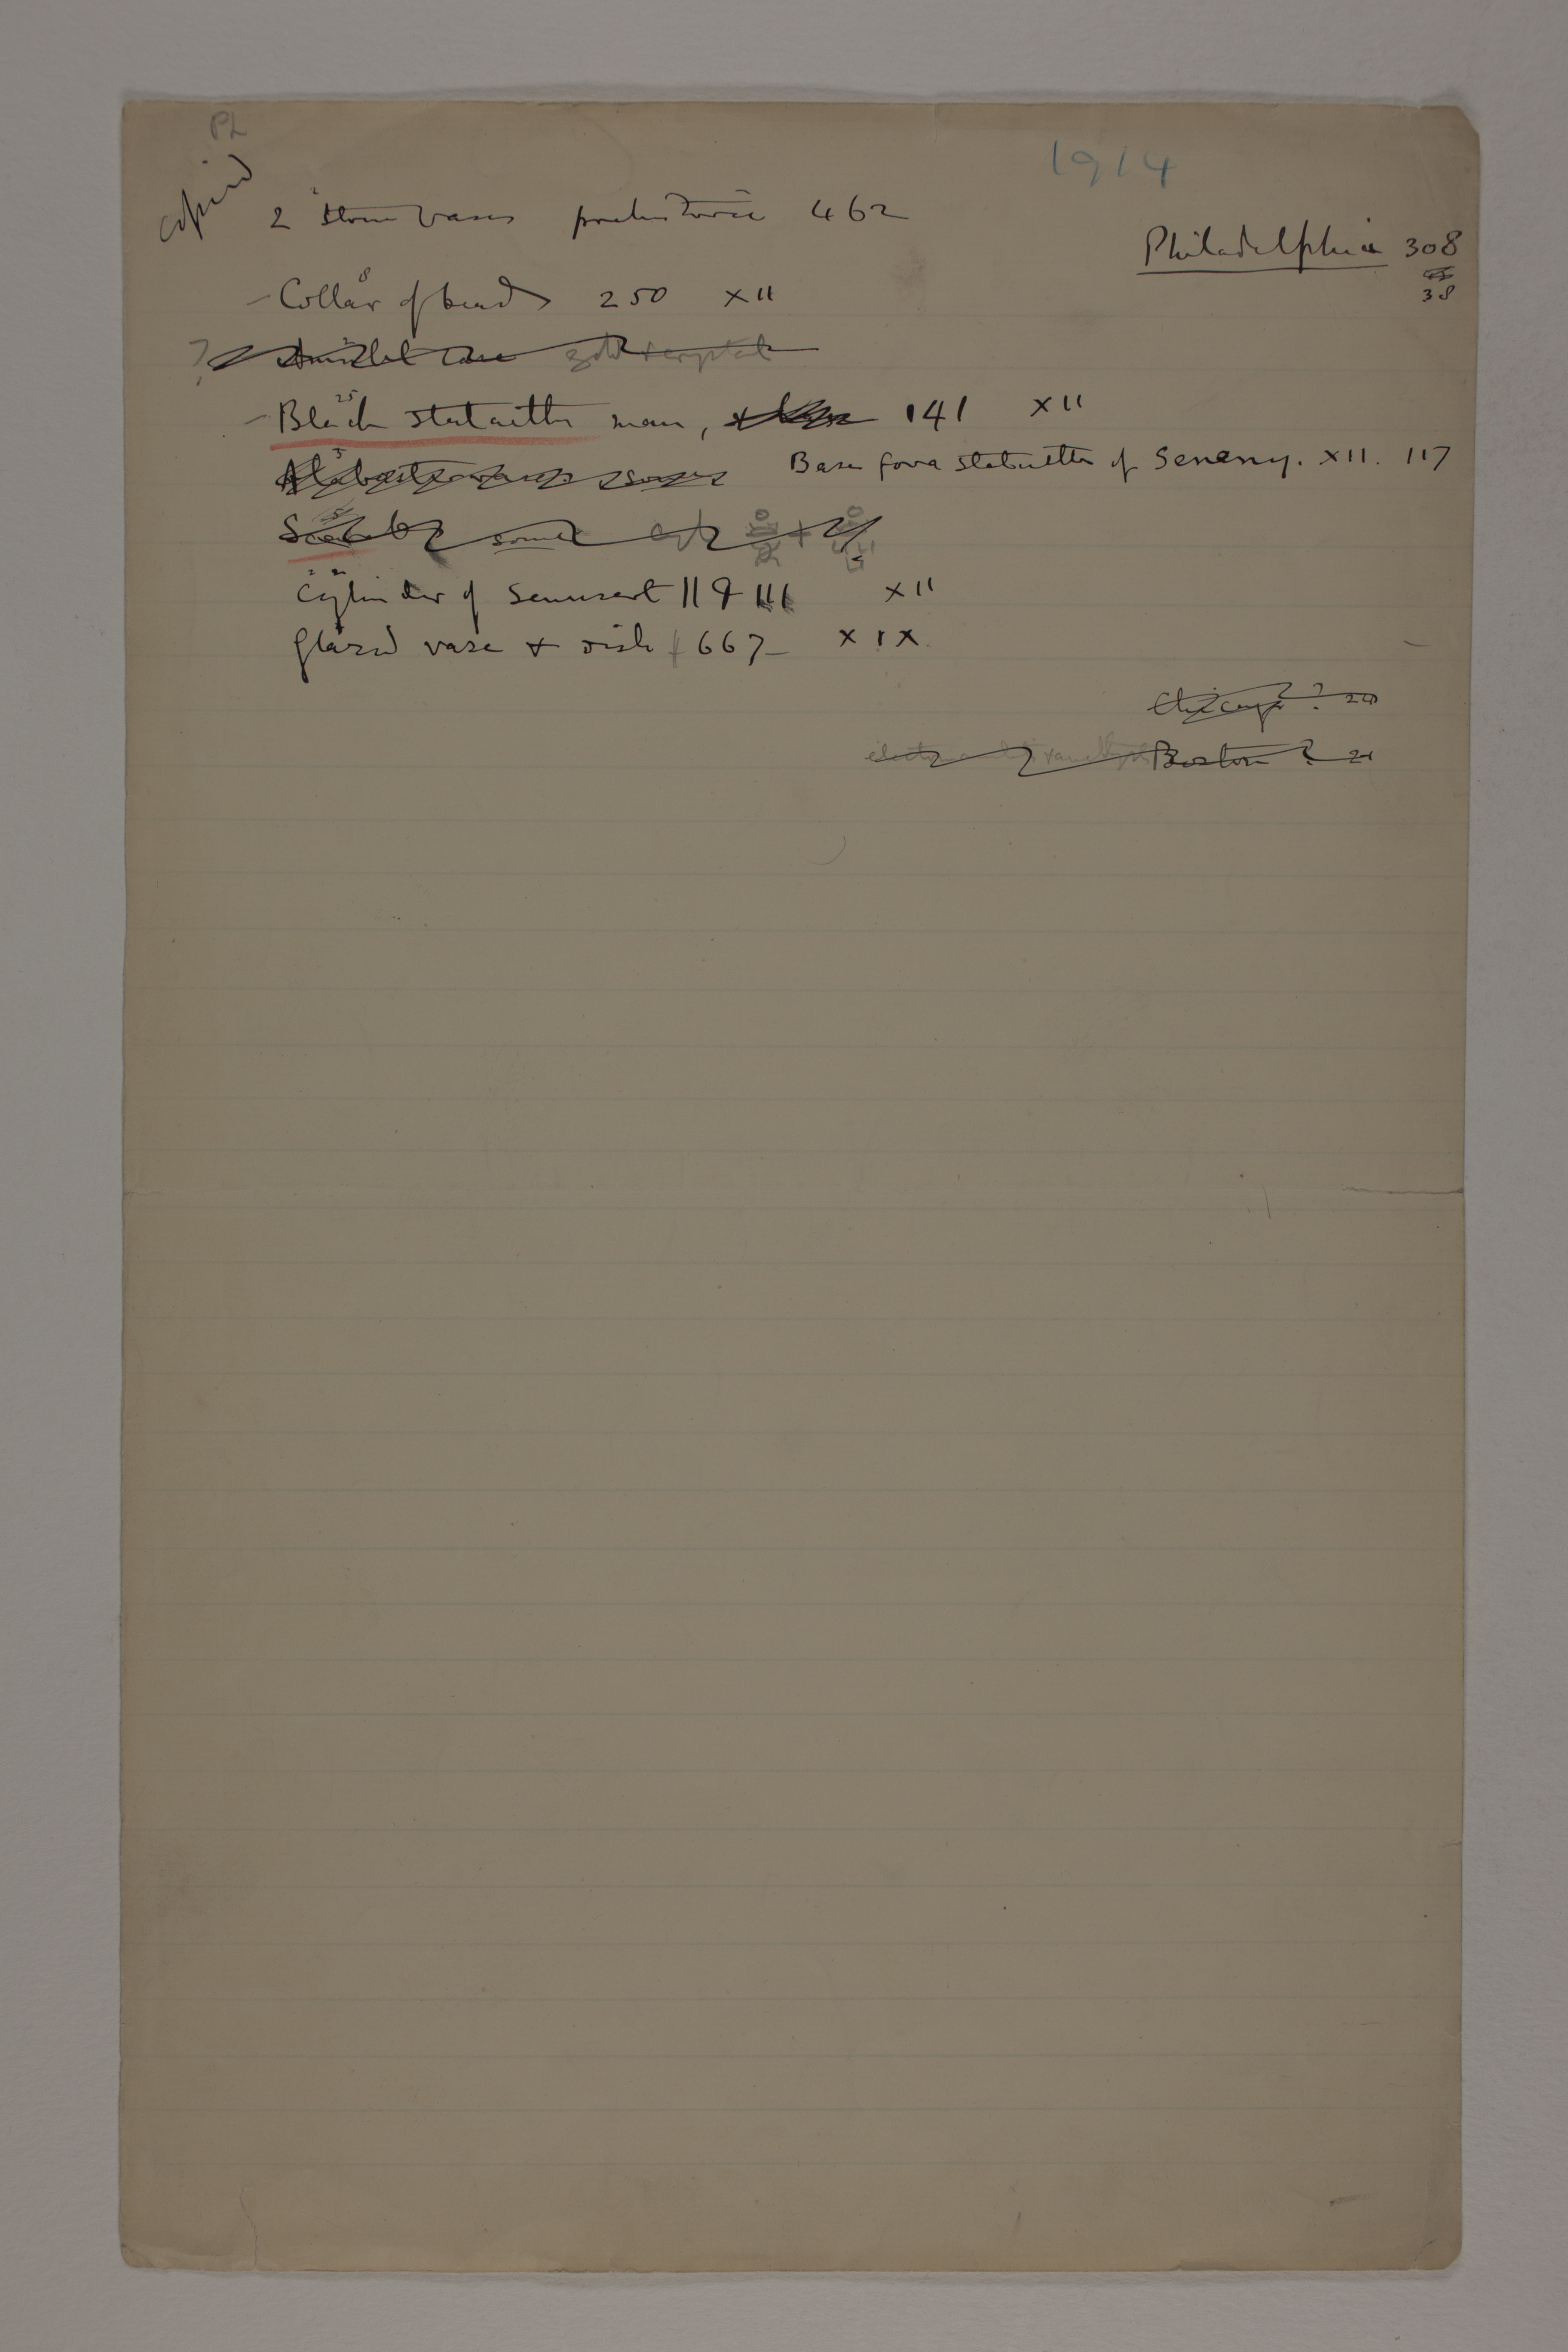 PL
copied
1914
2 stone vases prehistoric 462
Philadelphia 308
38
- Collar of beads 250 XII
8
? Amulet case gold + crystal
- Black statuette man, 141 XII
25
Base for a statuette of Senenny. XII. 117
Scarabs some
5
Cylinder of Senusert II & III XII
Glazed vase & dish 667 XIX.
Chicago? 20
Boston? 20